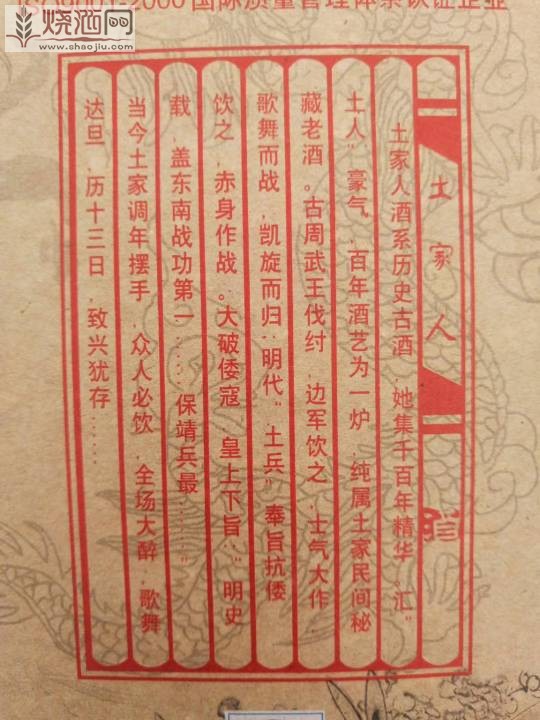 烧酒网
www.shaojiu.com
ISO9001-2000国际质量管理体系认证企业
土家人
土家人酒系历史古酒，她集千百年精华。汇"
土人"豪气，百年酒艺为一炉，纯属土家民间秘
藏老酒。古周武王伐纣，边军饮之，士气大作，
歌舞而战，凯旋而归；明代"土兵"奉旨抗倭
饮之，赤身作战。大破倭寇，皇上下旨："明史
载，盖东南战功第一……保靖兵最……"
当今土家调年摆手，众人必饮，全场大醉，歌舞
达旦，历十三日，致兴犹存……